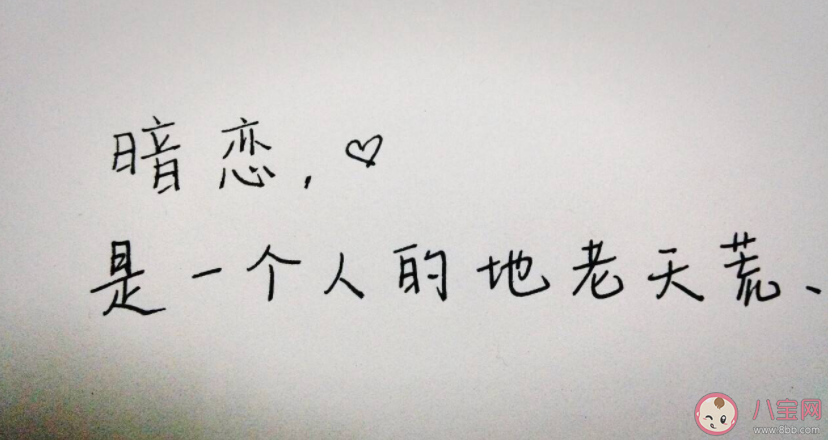 暗恋，♡
是一个人的地老天荒、
八宝网
www.8bb.com